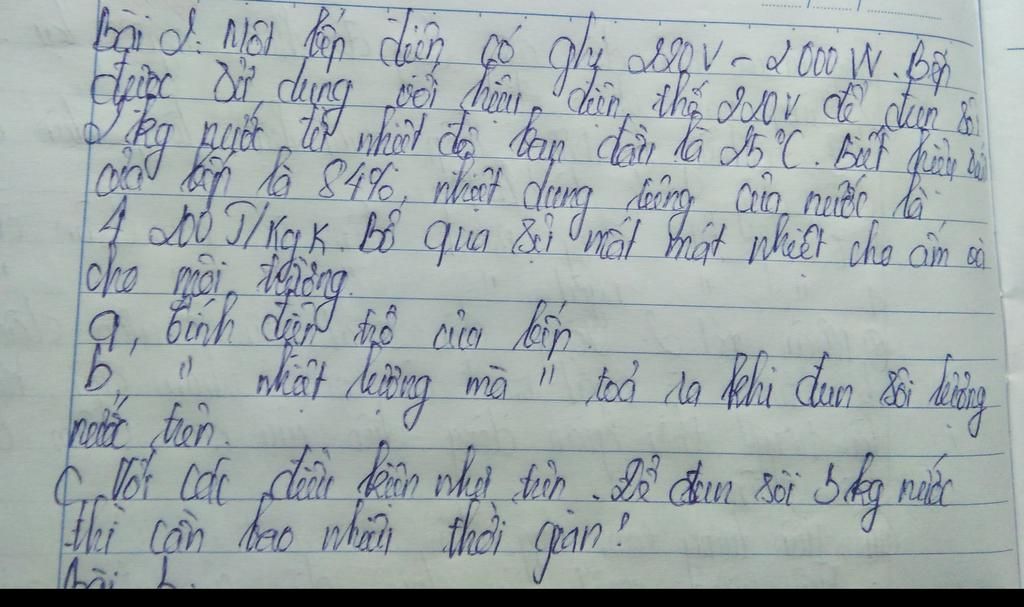 Bài 2: Một bếp điện có ghi 220V - 2000W. Bếp
được sử dụng với hiệu điện thế 220V để đun sôi
2 kg nước từ nhiệt độ ban đầu là 25°C. Biết hiệu suất
của bếp là 84%, nhiệt dung riêng của nước là
4 200 J/kg K. Bỏ qua sự mất mát nhiệt cho ấm và
cho môi trường.
a, Tính điện trở của bếp.
b, " nhiệt lượng mà " toả ra khi đun sôi lượng
nước trên.
c, Với các điều kiện như trên. Để đun sôi 5 kg nước
thì cần bao nhiêu thời gian?
Bài